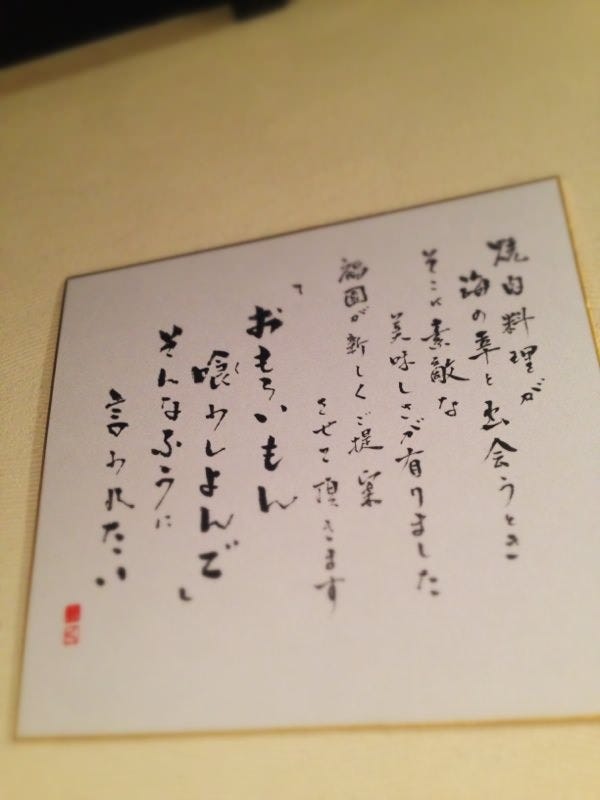 焼肉料理が
海の幸と出会うとき
そこに素敵な
美味しさが有りました
福園が新しくご提案
させて頂きます
「おもろいもん
喰わしよんで」
そんなふうに
言われたい